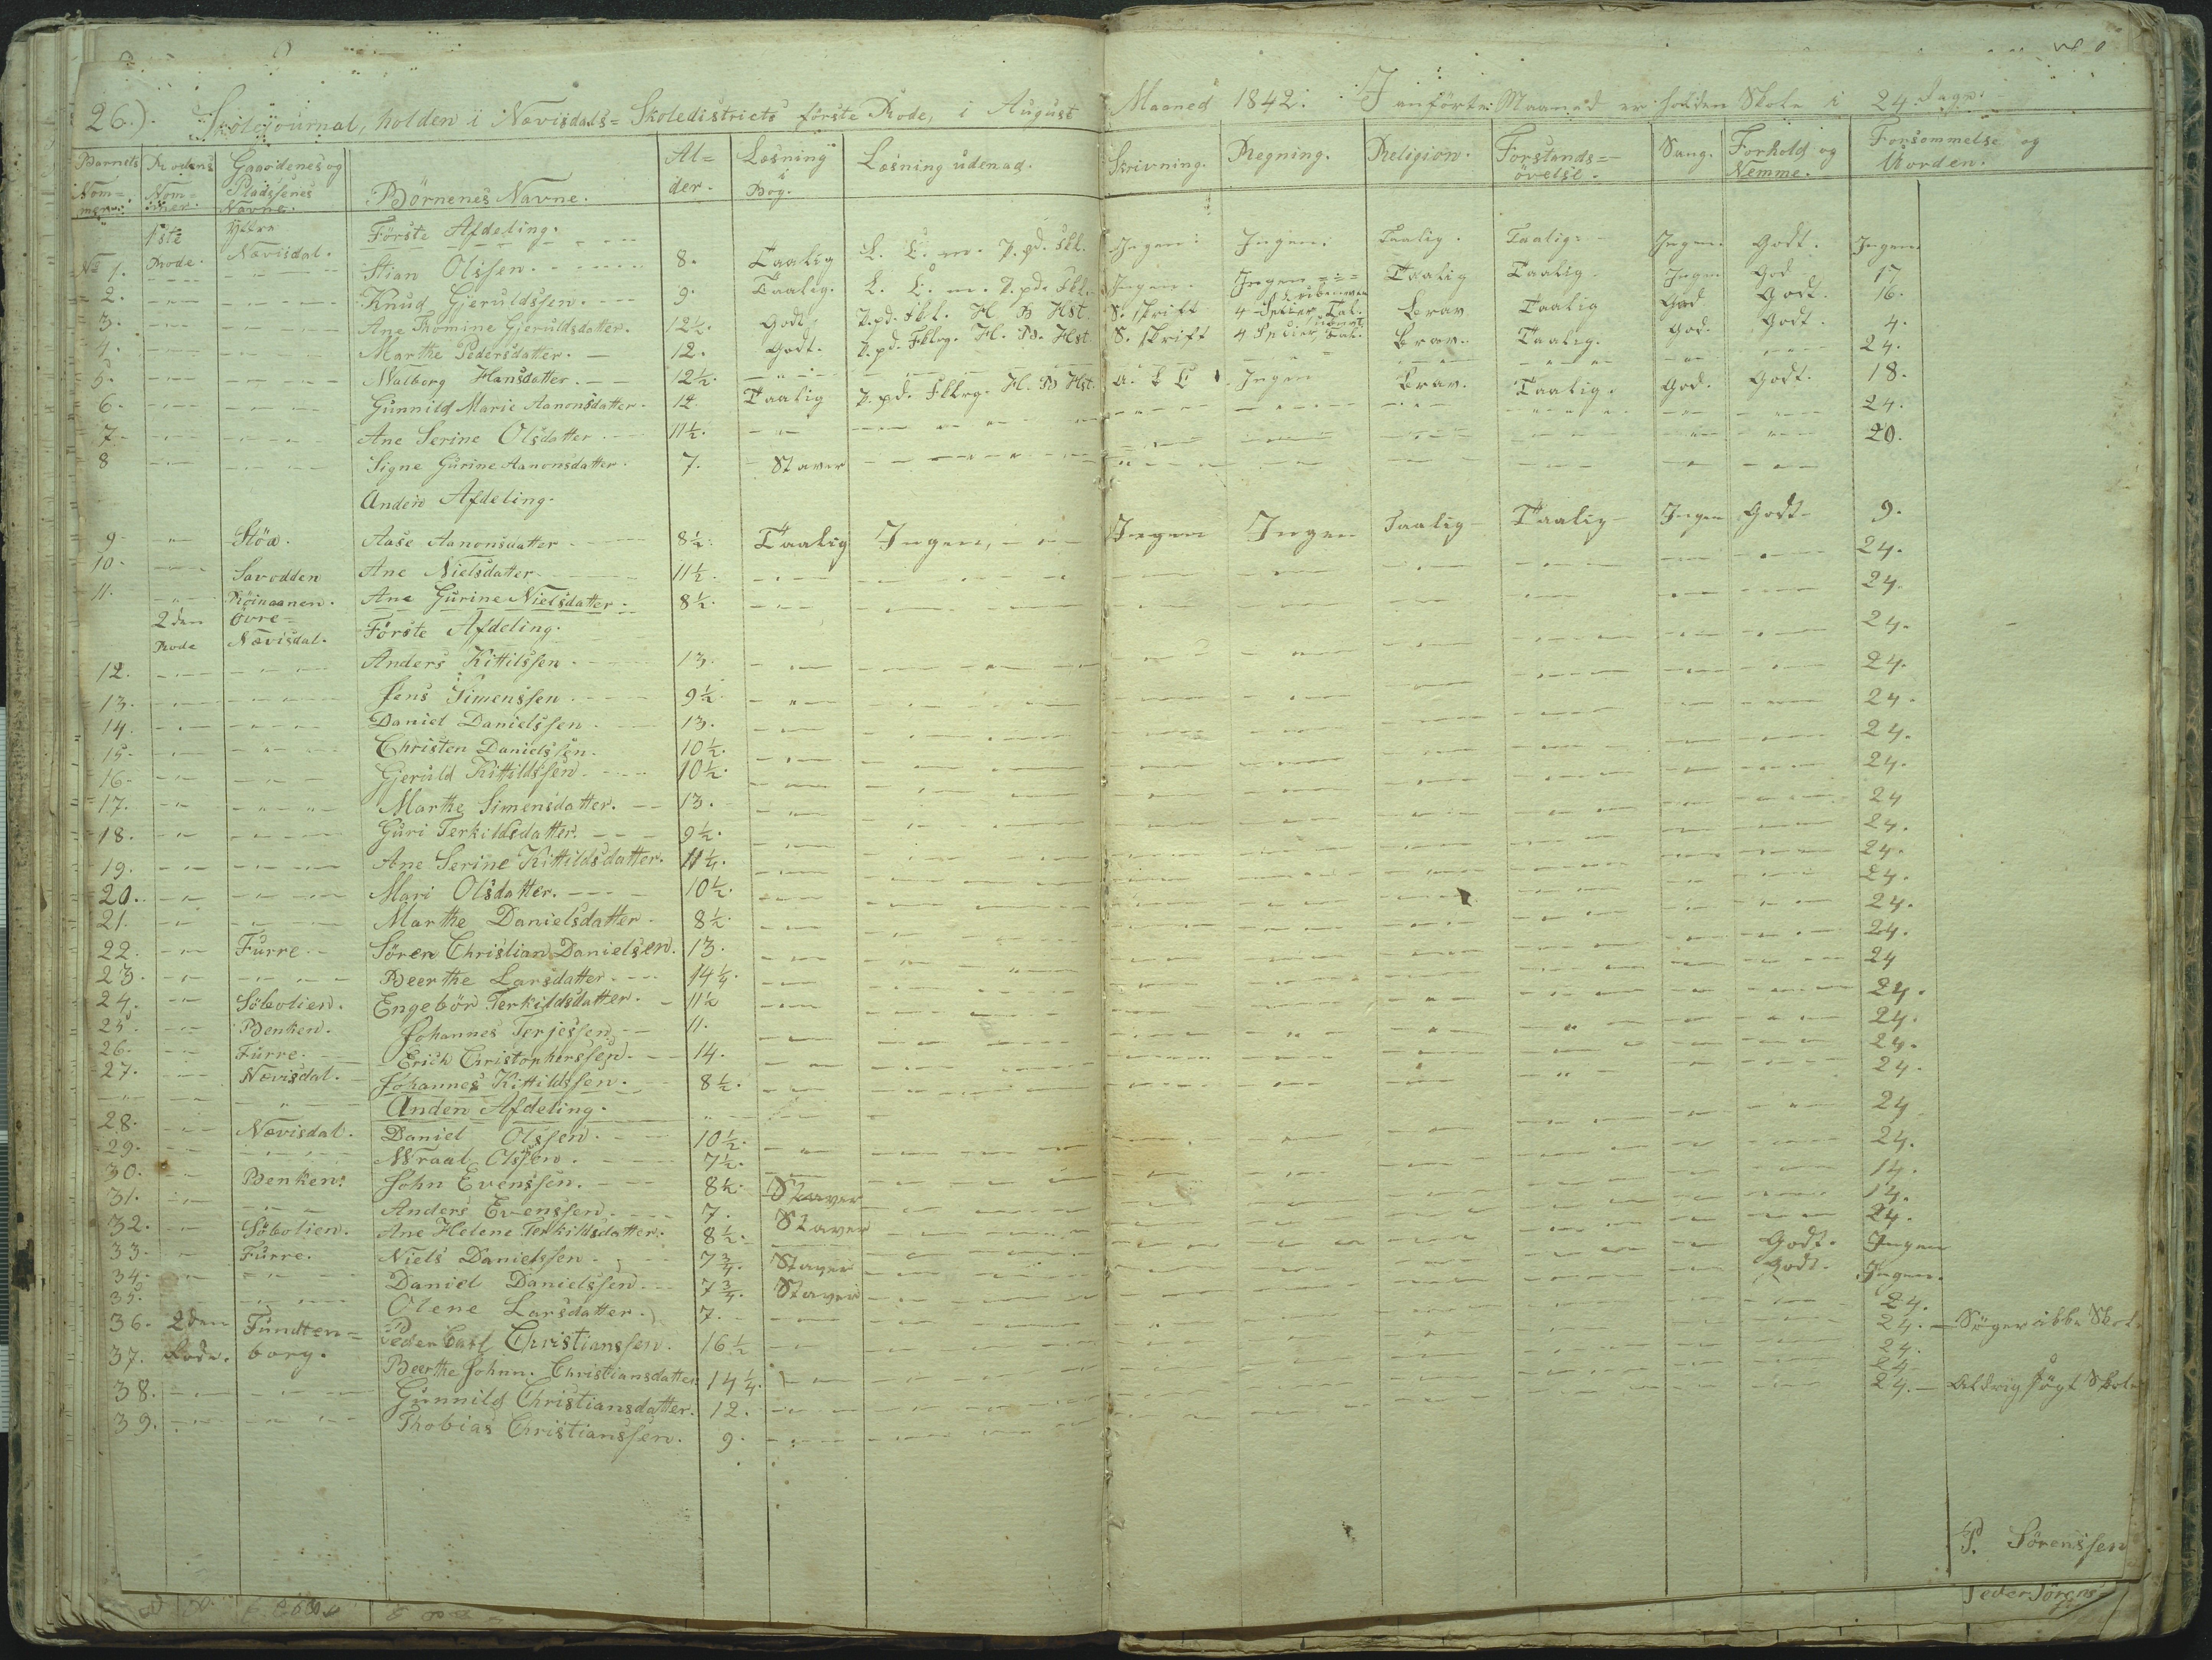 26.). Skolejournal, holden i Nævisdals= Skoledistricts förste Rode, i August Maaned 1842. I anförte Maaned er holden Skole i 24. Dage.
Barnets Nom= mer. Rodens Nom= mer. Gaardenes og Pladssenes Navne. Börnenes Navne. Al= der. Læsning i Bog. Læsning udenad. Skrivning. Regning. Religion. Forstands= övelse. Sang. Forhold og Nemme. Forsömmelse og Uorden.
1ste Rode. Yttre Nævisdal. Förste Afdeling.
No 1. Stian Olssen. 8. Taalig L. L. m. P. pd. Fkl. Ingen. Ingen. Taalig. Taalig. Ingen. Godt. Ingen.
2. Knud Gjeruldssen. 9. Taalig. L. L. m. P. pd. Fkl. Ingen. Ingen Taalig Taalig Ingen God 17
3. Ane Thomine Gjeruldsdatter. 12½. Godt P. pd. Fkl. H B Hst. S. skrift 4 Brav Taalig God Godt. 16.
4. Marthe Pedersdatter. 12. Godt. P. pd. Fklrg. H. B. Hst S. skrift 4 Brav. Taalig. God. Godt. 4.
5. Walborg Hansdatter. 12½. 24.
6. Gunnild Marie Aanonsdatter. 12. Taalig P. pd. Fklrg. H. B Hst. Ingen Brav. Taalig. God. Godt. 18.
7. Ane Serine Olsdatter 11½. 24.
8 Signe Gurine Aanonsdatter. 7. Staver 20.
Anden Afdeling.
9. Stöa. Aase Aanonsdatter 8½. Taalig Ingen, Ingen Ingen Taalig Taalig Ingen Godt 9.
10. Savodden Ane Nielsdatter. 11½. 24.
11. Ane Gurine Nielsdatter. 8½. 24.
2den Rode Övre= Nævisdal. Förste Afdeling.
12. Anders Kittilssen. 13. 24.
13. Jens Simenssen. 9½ 24.
14. Daniel Danielssen. 13. 24.
15. Christen Danielssen. 10½. 24.
16. Gjeruld Kittildssen. 10½. 24.
17. Marthe Simensdatter. 13. 24
18. Guri Terkildsdatter. 9½. 24.
19. Ane Serine Kittildsdatter. 11½. 24.
20. Mari Olsdatter. 10½. 24.
21. Marthe Danielsdatter 8½. 24.
22. Furre. Sören Christian Danielsen. 13. 24.
23. Beerthe Larsdatter 14¼. 24
24. Söbolien. Engebör Terkildsdatter. 11½ 24.
25. Benken. Johannes Terjessen. 11. 24.
26. Furre. Erich Christopherssen. 14. 24.
27. Nævisdal. Johannes Kittildssen. 8½. 24.
Anden Afdeling.
28. Nævisdal. Daniel Olssen. 10½. 24
29. Wraal Olssen. 7½. 24.
30. Benken. John Evenssen. 8½. Staver 14.
31. Anders Evenssen. 7. Staver 14.
32. Söbolien. Ane Helene Terkildsdatter. 8½. 24.
33. Furre. Niels Danielssen. 7¾. Staver Godt. Ingen
34. Daniel Danielssen. 7¾. Staver Godt. Ingen.
35. Olene Larsdatter. 7. 24.
36. 2den Rode. Fundten= borg. Peder Carl Christianssen. 16½ 24. Söger ikke Skole
37. Beerthe Johnn. Christiansdatter 14¼. 24.
38. Gunnild Christiansdatter. 12. 24
39. Thobias Christianssen. 9. 24. Aldrig sögt Skole
P. Sörenssen
Peder Sörens